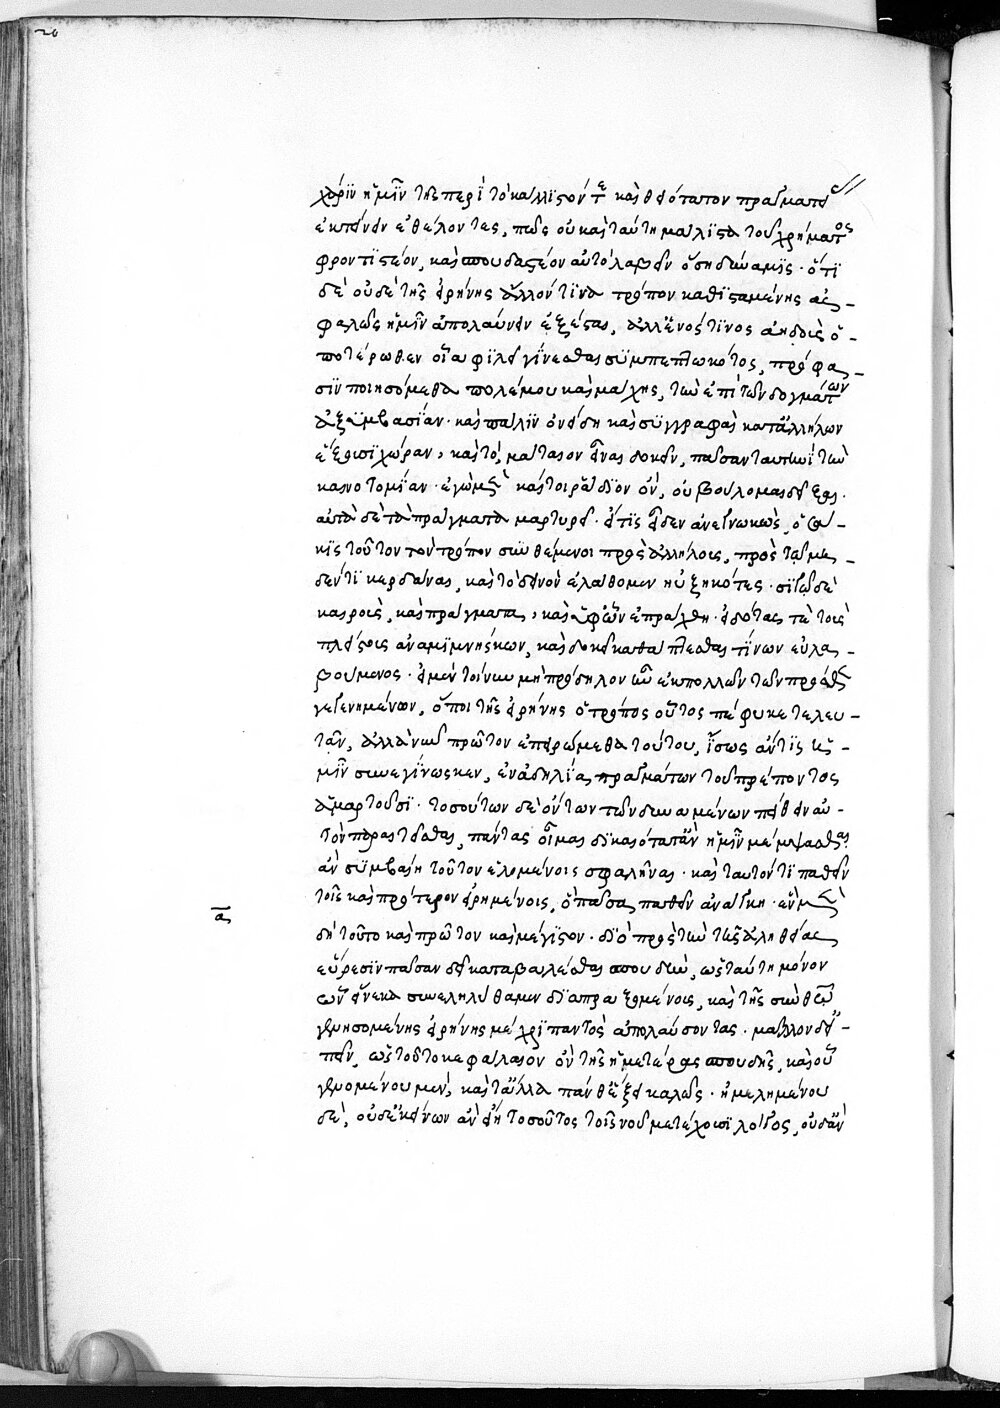 χάριν ἡμῖν τῆς περὶ τὸ κάλλιστόν τε καὶ θειότατον πρᾶγμα
ἐκπονεῖν ἐθέλοντας, πῶς οὐ καὶ ταύτῃ μάλιστα τοῦ χρήματος
φροντιστέον, καὶ σπουδαστέον αὐτὸ λαβεῖν ὅση δύναμις· ὅτι
δὲ οὐδὲ τῆς εἰρήνης ἄλλόν τινα τρόπον καθισταμένης ἀσ-
φαλῶς ἡμῖν ἀπολαύειν ἐξέσται, ἀλλ' ἑνός τινος ἀηδοῦς ὁ-
ποτέρωθεν οἷα φιλεῖ γίνεσθαι συμπεπτωκότος, πρόφα-
σιν ποιησόμεθα πολέμου καὶ μάχης, τὴν ἐπὶ τῶν δογμάτων
ἀξυμβασίαν· καὶ πάλιν ὀνείδη καὶ συγγραφαὶ κατ' ἀλλήλων
ἕξουσι χώραν, καὶ τὸ μάταιον εἶναι δοκεῖν, πᾶσαν ταυτηνὶ τὴν
καινοτομίαν· ἐγὼ μὲν καίτοι ῥᾴδιον ὂν, οὐ βούλομαι δεῖξαι·
αὐτὰ δὲ τὰ πράγματα μαρτυρεῖ· εἴ τις εἶδεν ἀνεγνωκὼς, ὁσά-
κις τοῦτον τὸν τρόπον συνθέμενοι πρὸς ἀλλήλους, πρὸς τῷ μη-
δέν τι κερδᾶναι, καὶ τὸ δεινὸν ἐλάθομεν ηὐξηκότες· σιγῶ δὲ
καιροὺς, καὶ πράγματα, καὶ ἐφ' ὧν ἐπράχθη· εἰδότας τε τοὺς
πλείους ἀναμιμνήσκων, καὶ δοκεῖν καθάπτεσθαί τινων εὐλα-
βούμενος· εἰ μὲν τοίνυν μὴ πρόδηλον ἦν ἐκ πολλῶν τῶν πρόσθεν
γεγενημένων, ὅποι τῆς εἰρήνης ὁ τρόπος οὗτος πέφυκε τελευ-
τᾶν, ἀλλὰ νῦν πρῶτον ἐπειρώμεθα τούτου, ἴσως ἄν τις ἡ-
μῖν συνεγίνωσκεν, ἐν ἀδηλίᾳ πραγμάτων τοῦ πρέποντος
ἁμαρτοῦσι· τοσούτων δὲ ὄντων τῶν δυναμένων πείθειν αὐ-
τὸν παραιτεῖσθαι, πάντας οἶμαι δικαιότατ' ἂν ἡμῖν μέμψασθαι
ἂν συμβαίη τοῦτον ἑλομένοις σφαλῆναι· καὶ ταυτόν τι παθεῖν
τοῖς καὶ πρότερον εἰρημένοις, ὃ πᾶσα παθεῖν ἀνάγκη· ἓν μὲν
δὴ τοῦτο καὶ πρῶτον καὶ μέγιστον· διὸ πρὸς τὴν τῆς ἀληθείας
εὕρεσιν πᾶσαν δεῖ καταβαλέσθαι σπουδὴν, ὡς ταύτῃ μόνον
ὧν ἕνεκα συνεληλύθαμεν διαπραξομένοις, καὶ τῆς σὺν θεῷ
γενησομένης εἰρήνης μέχρι παντὸς ἀπολαύσοντας· μᾶλλον δ' εἰ-
πεῖν, ὡς τοῦτο κεφάλαιον ὂν τῆς ἡμετέρας σπουδῆς, καὶ οὗ
γενομένου μὲν, καὶ τἄλλα πάνθ' ἕξει καλῶς· ἠμελημένου
δὲ, οὐδ' ἐκείνων ἂν εἴη τοσοῦτος τοῖς νοῦ μετέχουσι λόγος, οὐδ' ἂν
α